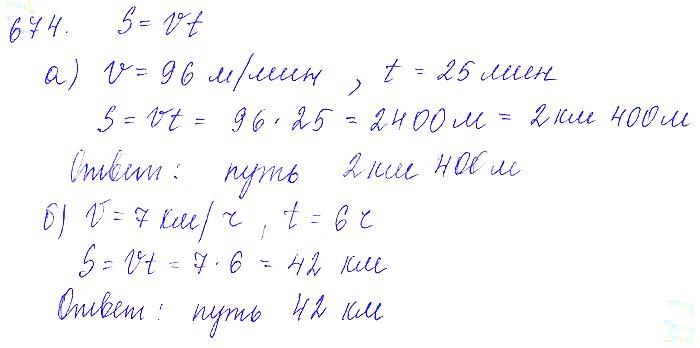 674. S = vt
а) v = 96 м/мин, t = 25 мин
S = vt = 96 · 25 = 2400 м = 2 км 400 м
Ответ: путь 2 км 400 м
б) v = 7 км/ч, t = 6 ч
S = vt = 7 · 6 = 42 км
Ответ: путь 42 км